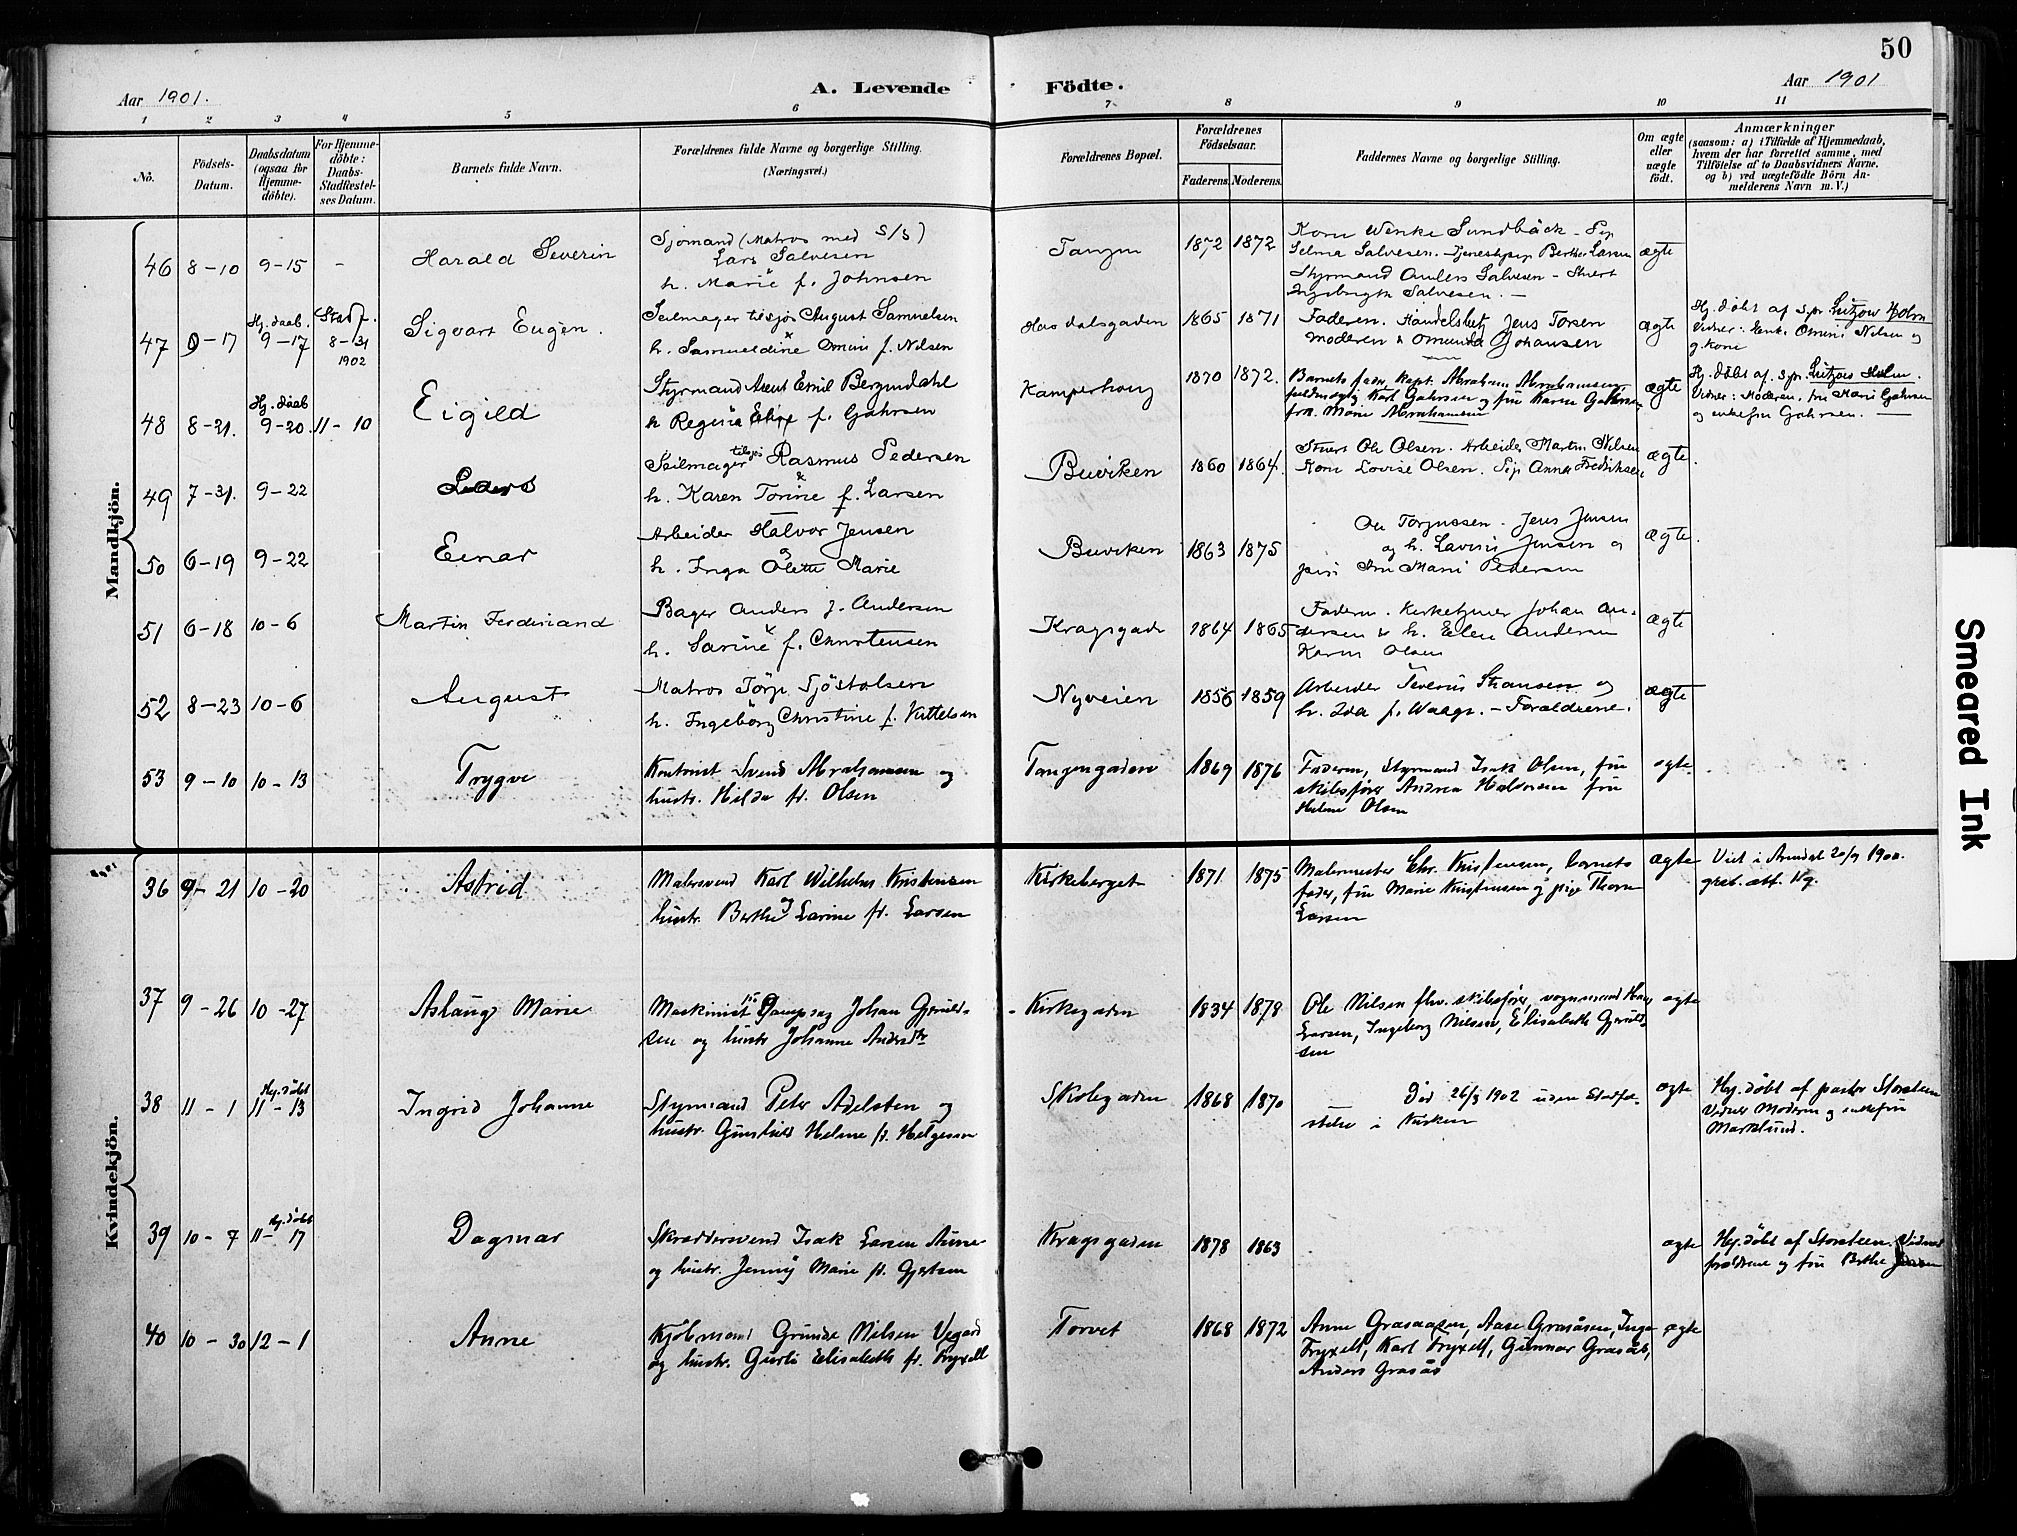 50
Aar 1901.
A. Levende
Födte.
Aar 1901
1 2 3 4 5 6 7 8 9 10 11
No.
Födsels-
Datum.
Daabsdatum
(ogsaa for
Hjemme-
döbte).
For Hjemme-
döbte:
Daabs-
Stadfæstel-
ses Datum.
Barnets fulde Navn.
Forældrenes fulde Navne og borgerlige Stilling.
(Næringsvei.)
Forældrenes Bopæl.
Forældrenes
Födselsaar.
Faderens. Moderens.
Faddernes Navne og borgerlige Stilling.
Om ægte
eller
uægte
födt.
Anmærkninger
(saasom: a) i Tilfælde af Hjemmedaab,
hvem der har forrettet samme, med
Tilföielse af to Daabsvidners Navne,
og b) ved uægtefödte Börn An-
melderens Navn m. V.)
Mandkjön.
46 8-10 9-15 - Harald Severin
Sjömand (Matros med S/S)
Lars Salvesen
h. Marie f. Johnsen
Tangen 1872 1872
Kone Wenke Sundbäck - Pig
Selma Salvesen. Tjenestepige Berthe Larsen
Styrmand Anders Salvesen - Stuert
Salvesen. -
ægte
47 9-17 Hj. daab. 9-17 Stadf. 8-31 1902 Sigvart Eugen.
Seilmager tilsjös August Samuelsen
h. Samueldine Omine f. Nilsen
Hasdalsgaden 1865 1871
Faderen. Jens Torsen
Moderen & Johansen
ægte
Hj. döbt af Spr. Lützow Holm
Vidner: Enke Omine Nilsen og
g. kone
48 8-21. Hj. daab 9-20. 11-10 Eigild
Styrmand Axent Emil Bergendahl
h Regine Elise f. Gahrsen
Kamperhoug 1870 1872.
Barnets fader, Kapt. Abraham Abrahamsen,
Karl Gahrsen og fru Karen
frk. Marie Abrahamsen
ægte
Hj. döbt af S.pr. Lützow Holm.
Vidner: Moderen, fru Marie Gahrsen
og enkefru Gahrsen.
49 7-31. 9-22 Lars
Seilmager tilsjös Rasmus Pedersen
h. Karen Torine f. Larsen
Buviken 1860 1864.
Stuert Ole Olsen. Arbeider Martin Nilsen
Kone Lovise Olsen. Pig Anna Fredriksen
ægte.
50 6-19 9-22 Einar
Arbeider Halvor Jensen
h. Inga Olette Marie
Buviken 1863 1875
Ole Torjussen. Jens Jensen
og h. Lavine Jensen og
Marie Pedersen
ægte.
51 6-18 10-6 Martin Ferdinand
Bager Anders J. Andersen
h. Sarine f. Christensen
Kragsgade 1864 1865
Faderen. Kirketjener Johan An-
dersen & h. Elen Andersen
Karen Olsen
ægte
52 8-23 10-6 August
Matros Törp. Sjöstolsen
h. Ingeborg Christine f. Kittelsen
Nyveien 1856 1859
Arbeider Severin og
h. Ida f. Waage. - Forældrene.
ægte
53 9-10 10-13 Trygve
Kontorist Svend Abrahamsen og
hustr. Hilda fd. Olsen
Tangengaden 1869 1876
Faderen, Styrmand Isak Olsen, fru
skibsförer Andrea Halvorsen fru
Helene Olsen
ægte.
Kvindekjön.
36 9-21 10-20 Astrid
Malersvend Karl Wilhelm Kristensen
og
hustr. Berthe Larine fd. Larsen
Kirkeberget 1871 1875
Malermester Chr. Kristensen, barnets
fader, fru Marie Kristensen og pige Thora
Larsen
ægte
Viet i Arendal 20/9 1900.
37 9-26 10-27 Aslaug Marie
Maskinist på Dampsag Johan Gjeruld-
sen og hustr Johanne Andersdtr
Kirkegaden 1834 1878
Ole Nilsen fhv. skibsförer, vognmand Hans
Larsen, Ingeborg Nilsen, Elisabeth Gjeruld-
sen
ægte
38 11-1 Hj. döbt 11-13 Ingrid Johanne
Styrmand Peter Adelsten og
hustr. Gunhild Helene fd. Helgesen
Skolegaden 1868 1870
Död 26/8 1902 uden Stadfæ-
stelse i Kirken
ægte
Hj. döbt af pastor Storsteen
Vidner Moderen og enkefru
Marklund.
39 10-7 Hj. döbt 11-17 Dagmar
Skræddersvend Isak Larsen Aune
og hustr. Jenny Marie fd. Gjertsen
Kragsgaden 1878 1863
ægte
Hj. döbt af Storsteen. Vidner
forældrene og fru Berthe Jensen
40 10-30 12-1 Anne
Kjöbmand Grunde Nilsen Vegard
og hustr. Gurli Elisabeth fd. Fryxell
Torvet 1868 1872
Anne Grasaasen, Aase Grasåsen, Inga
Fryxell, Karl Fryxell, Gunnar Grasås,
Anders Grasås
ægte
Smeared Ink